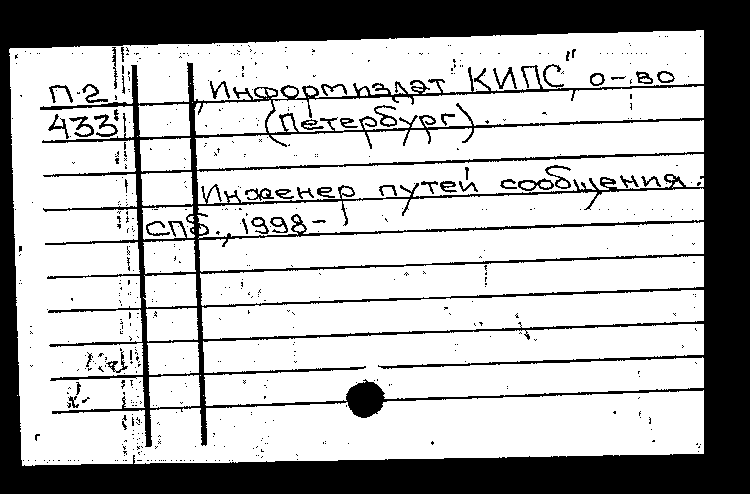 П2 „Информиздат "КИПС", о-во
433 (Петербург).
Инженер путей сообщения. :
СПб., 1998-